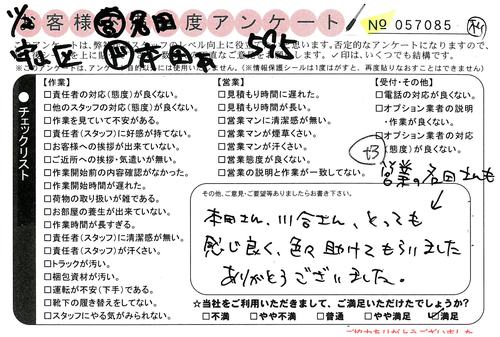 お客様満足度アンケート
営 名田
№ 057085
本田
595
このアンケートは、弊社
ッフのレベル向上に役立
と思います。否定的なアンケートになりますので、
✓印は、いくつでも結構です。
※このアンケートは、アンケート目的以外には使用いたしません。(※情報保護シールは1度はがすと、再度貼りなおすことはできません)
チェックリスト
【作業】
□責任者の対応(態度)が良くない。
□他のスタッフの対応(態度)が良くない。
□作業を見ていて不安がある。
□責任者(スタッフ)に好感が持てない。
□お客様への挨拶が出来ていない。
□ご近所への挨拶・気遣いが無い。
□作業開始前の内容確認がなかった。
□作業開始時間が遅れた。
□荷物の取り扱いが雑である。
□お部屋の養生が出来ていない。
□作業時間が長すぎる。
□責任者(スタッフ)に清潔感が無い。
□責任者(スタッフ)が汗くさい。
□トラックが汚い。
□梱包資材が汚い。
□運転が不安(下手)である。
□靴下の履き替えをしてない。
□スタッフにやる気がみられない。
【営業】
□見積もり時間に遅れた。
□見積もり時間が長い。
□営業マンに清潔感が無い。
□営業マンが煙草くさい。
□営業マンが汗くさい。
□営業態度が良くない。
□営業の説明と作業が一致してない。
【受付・その他】
□電話の対応が良くない。
□オプション業者の説明
・作業が良くない。
□オプション業者の対応
(態度)が良くない。
+3
営業の名田さんも
その他、ご意見・ご要望等ありましたらお書き下さい。
本田さん、川合さん、とっても
感じ良く、色々助けてもらいました
ありがとうございました。
☆当社をご利用いただきまして、ご満足いただけたでしょうか?
□不満 □やや不満 □普通 □やや満足 ☑満足
ご協力ありがとうございました